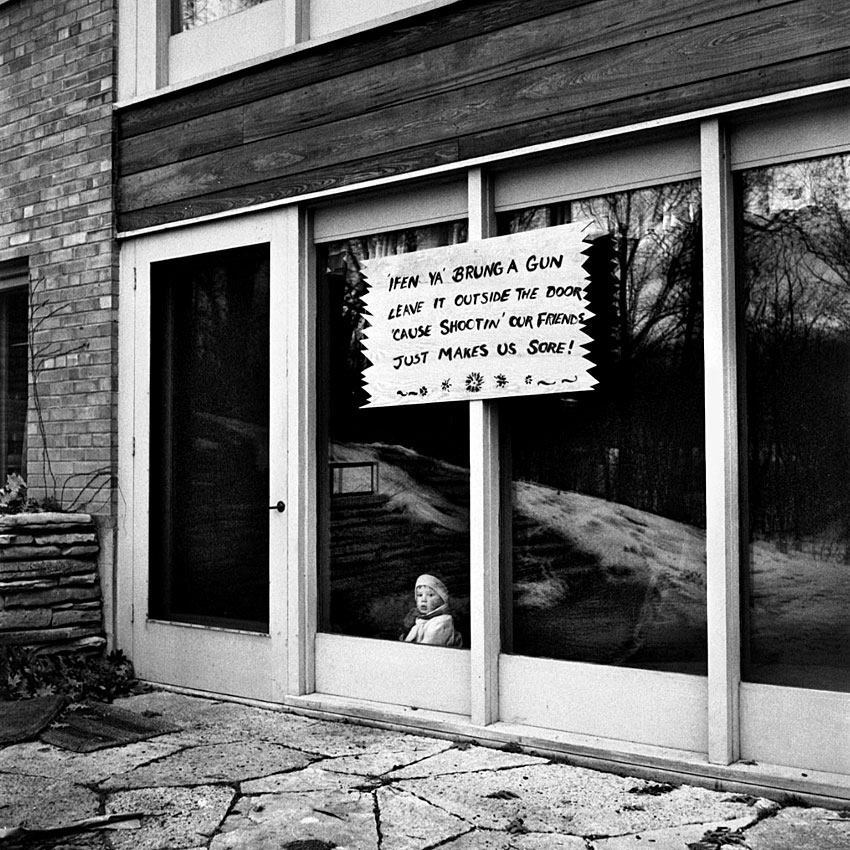 'IFEN YA' BRUNG A GUN
LEAVE IT OUTSIDE THE DOOR
'CAUSE SHOOTIN' OUR FRIENDS
JUST MAKES US SORE!